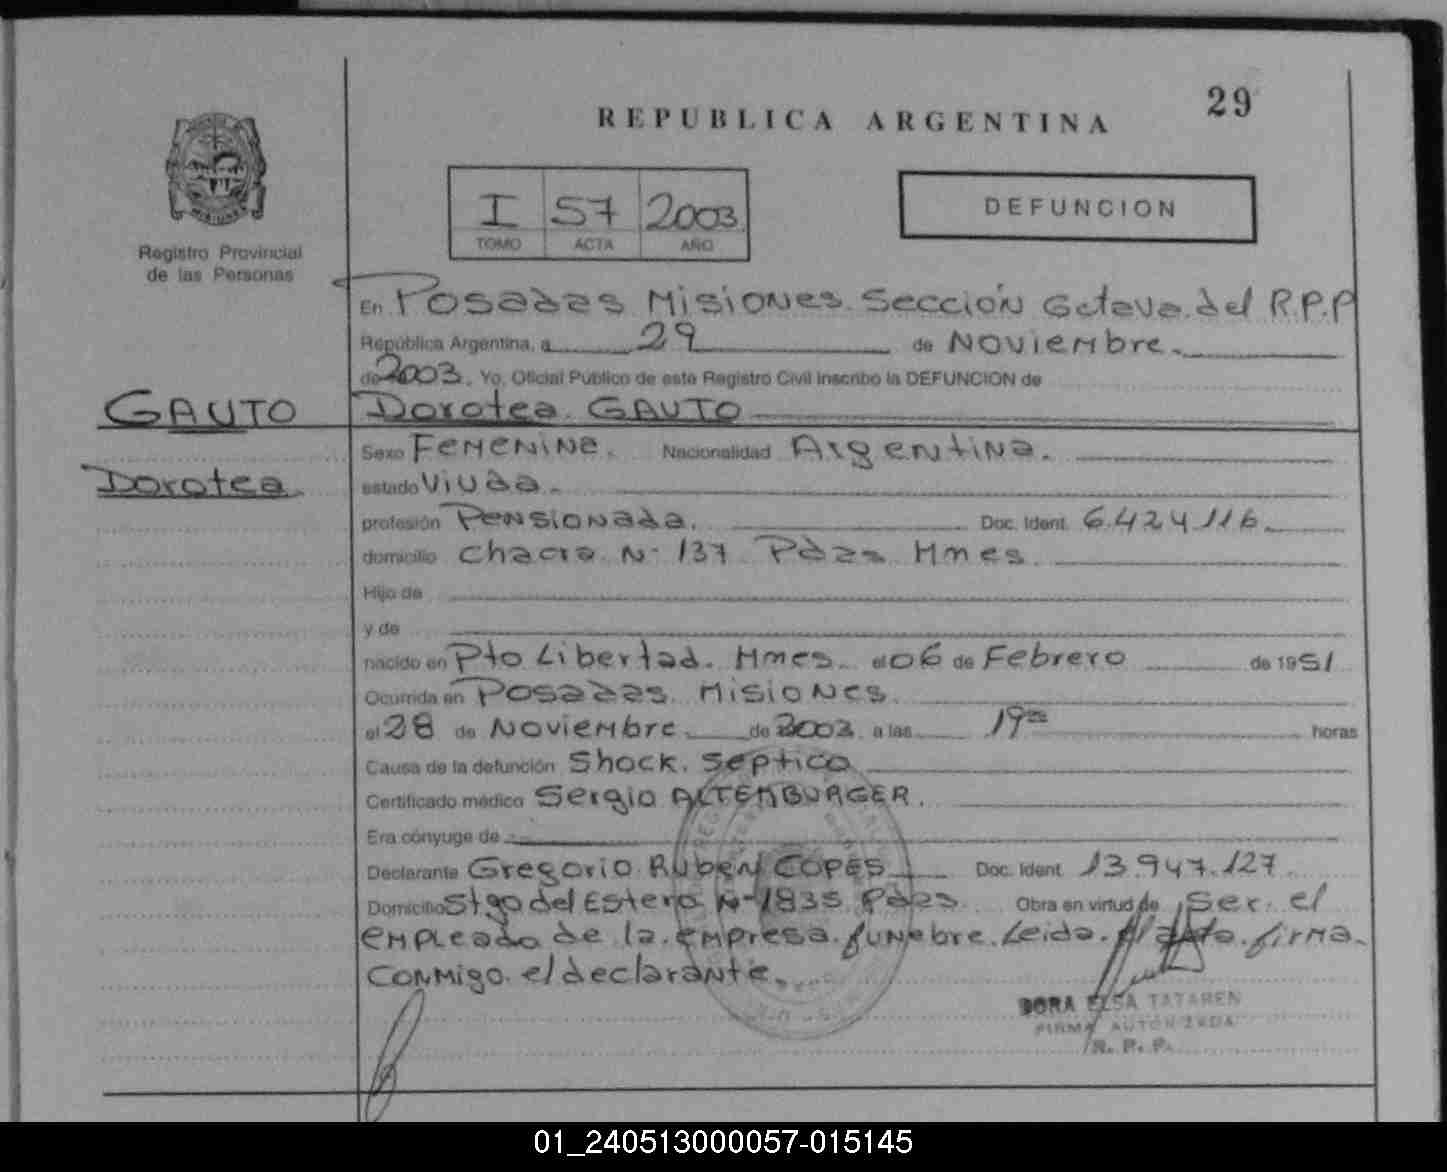 29
REPUBLICA ARGENTINA
I 57 2003
TOMO ACTA AÑO
DEFUNCION
MISIONES
Registro Provincial
de las Personas
En Posadas Misiones. Sección Octava del R.P.P
República Argentina, a 29 de Noviembre.
de 2003. Yo, Oficial Público de este Registro Civil inscribo la DEFUNCION de
GAUTO Dorotea GAUTO
Sexo Femenina. Nacionalidad Argentina.
Dorotea. estado Viuda.
profesión Pensionada. Doc. Ident. 6.424.116.
domicilio Chacra N- 137 Pdas Mnes.
Hijo de
y de
nacido en Pto Libertad. Mnes. el 06 de Febrero de 1951
Ocurrida en Posadas. Misiones.
el 28 de Noviembre. de 2003. a las 19 horas
Causa de la defunción Shock. septico
Certificado médico Sergio ALTEMBURGER.
Era cónyuge de
Declarante Gregorio Ruben COPES Doc. Ident. 13.947.127.
Domicilio Stgo del Estero N-1835 Pdas. Obra en virtud de Ser. el
empleado de la empresa funebre. Leida. el acta. firma.
conmigo. el declarante.
DORA ELSA TATAREN
FIRMA AUTORIZADA
R. P. P.
01_240513000057-015145